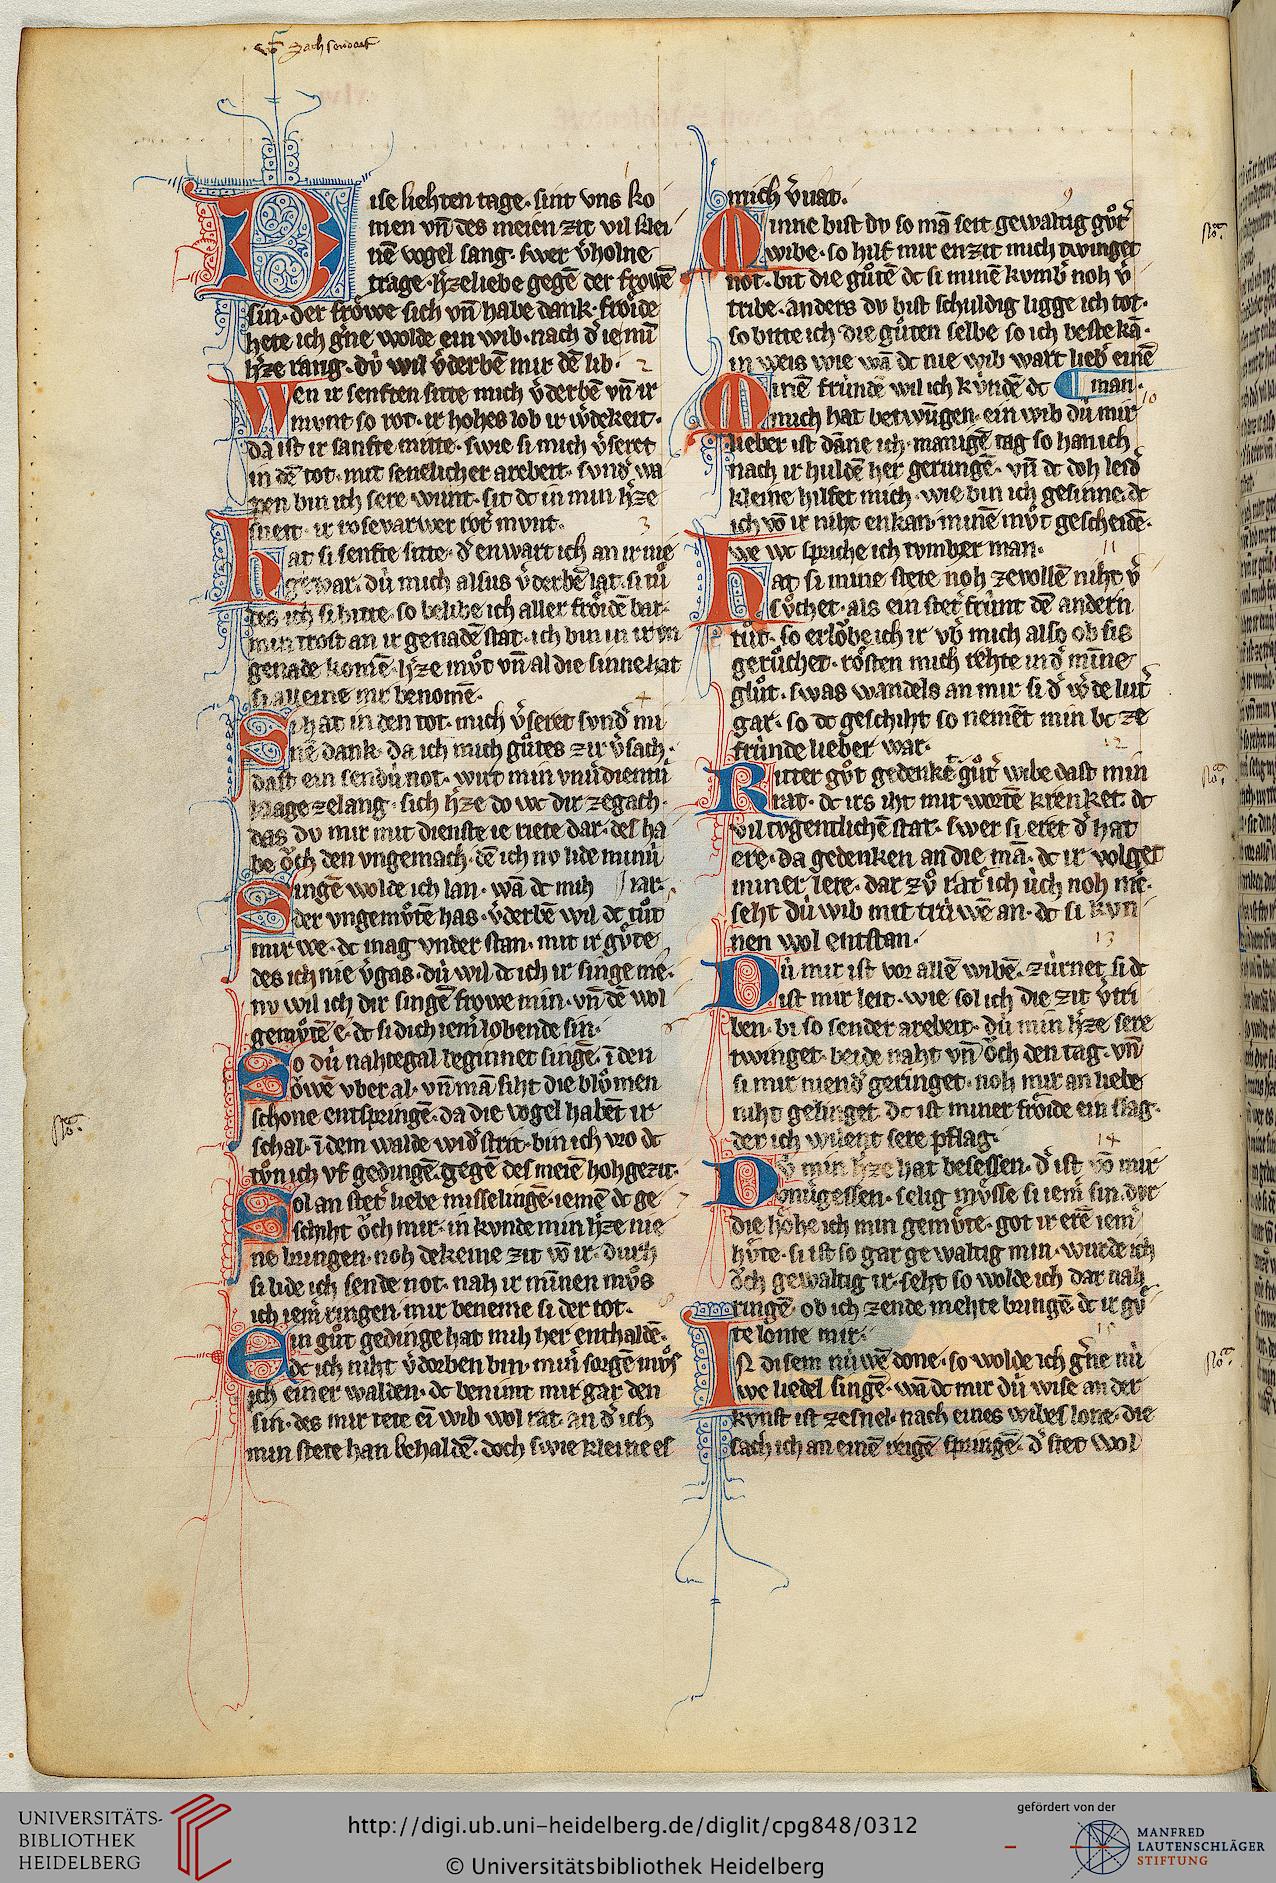 vō Sachsendorf
Dise liehten tage· sint vns ko
men vn̄ des meien zit vil klei
nē vogel sang· swer v̾holne
trage· h̾zeliebe gegē der frowē
sin· der froͤwe sich vn̄ habe dank· froͤide
hete ich g̾ne wolde ein wib· nach d̾ ie mī
h̾ze rang· dv̇ wil v̾derbē mir dē lib· 2
Wen ir senften sitte mich v̾derbē vn̄ ir
mvnt so rot· ir hohes lob ir w̾dekeit·
da ist ir sanfte mitte· swie si mich v̾seret
in dē tot· mit senelicher arebeit· svnd̾ wa
fen bin ich sere wunt· sit dc in min h̾ze
sneit· ir rosevarwer rot̾ mvnt· 3
Hat si senfte sitte· d̾ enwart ich an ir nie
gewar· dv̇ mich alsus v̾derbē lat· si tv̊
des ich si bitte· so belibe ich aller froͤidē bar·
min trost an ir genadē stat· ich bin in ir vn
genade komē· h̾ze mv̊t vn̄ al die sinne hat
si alleine mir benomē· 4
Si hat in den tot· mich v̾seret svnd̾ mi
nē dank· da ich mich gv̊tes zir v̾sach·
dast ein sendv̇ not· wirt min vnu̾dientv̇
klage ze lang· sich h̾ze do wc dir ze gach·
das dv mir mit dienste ie riete dar· des ha
be oͮch den vngemach· dē ich nv lide minv̇
iar·
Singē wolde ich lan· wā dc mih
der vngemv̊tē has· v̾derbē wil dc tv̊t
mir we· dc mag vnder stan· mit ir gv̊te
des ich nie v̾gas· dv̇ wil dc ich ir singe me·
nv wil ich dir singē frowe min· vn̄ dē wol
gemv̊tē e· dc si dich iem̾ lobende sin·
So dv̇ nahtegal beginnet singē· ī den
oͮwē vber al· vn̄ mā siht die blv̊men
schone entspringē· da die vogel habēt ir
schal· ī dem walde wid̾ strit· bin ich vro dc
tv̊n ich vf gedingē· gegē des meiē hohgezit·
Sol an stet̾ liebe misselingē· iemē dc ge 7
schiht oͮch mir· in kvnde min h̾ze nie
ne bringen· noh dekeine zit vō ir· durh
si lide ich sende not· nah ir minnen mv̊s
ich iem̾ ringen· mir beneme si der tot· 8
Ein gv̊t gedinge hat mih her enthaldē·
dc ich niht v̾dorben bin· min̾ sorgē mv̊s
ich einer walden· dc benimt mir gar den
sin· des mir tete ei wib wol rat· an d̾ ich
min stete han behaldē· doch swie kleine es
mich v̾uat· 9
Minne bist dv so mā seit gewaltig gv̊t̾
wibe· so hilf mir enzit mich twinget
not· bit die gv̊tē dc si minē kvmb̾ noh v̾
tribe· anders dv bist schuldig ligge ich tot·
so bitte ich die gv̊ten selbe so ich beste kā·
in weis wie wā dc nie wib wart lieb̾ einē
man· 10
Minē frūndē wil ich kvndē dc
mich hat betwūgen· ein wib dv̇ mir
lieber ist dāne ich· manigē tag so han ich
nach ir huldē her gerungē· vn̄ dc doh leid̾
kleine hilfet mich· wie bin ich gesinne dc
ich vō ir niht enkan minē mv̊t gescheidē·
we wc spriche ich tvmber man· 11
Hat si mine stete noh ze vollē niht v̾
sv̊chet· als ein stet̾ frv̇nt dē andern
tv̊t· so erloͮbe ich ir vb̾ mich also ob sis
gerv̊chet· rōsten mich rehte in d̾ mīne
glv̊t· swas wandels an mir si d̾ w̾de lut̾
gar· so dc geschiht so nemēt min bc ze
frv̇nde lieber war· 12
Ritter gv̊t gedenkēt gv̊t̾ wibe dast min
rat· dc irs iht mit wortē krenket dc
vil tvgentlichē stat· swer si eret d̾ hat
ere· da gedenken an die mā· dc ir volget
miner lere· dar zv̊ rat ich v̇ch noh me·
seht dv̇ wib mit trv̇wē an· dc si kvn
nen wol entstan· 13
Dv̇ mir ist vor allē wibē· zv̇rnet si dc
ist mir leit· wie sol ich die zit v̾tri
ben· bi so sender arebeit· dv̇ min h̾ze sere
twinget· beide naht vn̄ oͮch den tag· vn̄
si mir niend̾ geringet· noh mir an liebe
niht gelinget· dc ist miner froͤide ein slag·
der ich wilent sere pflag· 14
Dv̇ min h̾ze hat besessen· d̾ ist vō mir
vnu̾gessen· selig mv̊sse si iem̾ sin· dvr
die hoͤhe ich min gemv̊te· got ir erē iem̾
hv̊te· si ist so gar gewaltig min· wurde ich
oͮch gewaltig ir· seht so wolde ich dar nah
ringē· ob ich zende mehte bringē· dc ir gv̊
te lonte mir· 15
IN disem nv̇wē done· so wolde ich g̾ne nv̇
we liedel singē· wā dc mir dv̇ wise an der
kvnst ist ze snel· nach eines wibes lone· die
sach ich an einē reigē springē· d̾ stet wol
UNIVERSITÄTS-
BIBLIOTHEK
HEIDELBERG
http://digi.ub.uni-heidelberg.de/diglit/cpg848/0312
© Universitätsbibliothek Heidelberg
gefördert von der
MANFRED
LAUTENSCHLÄGER
STIFTUNG